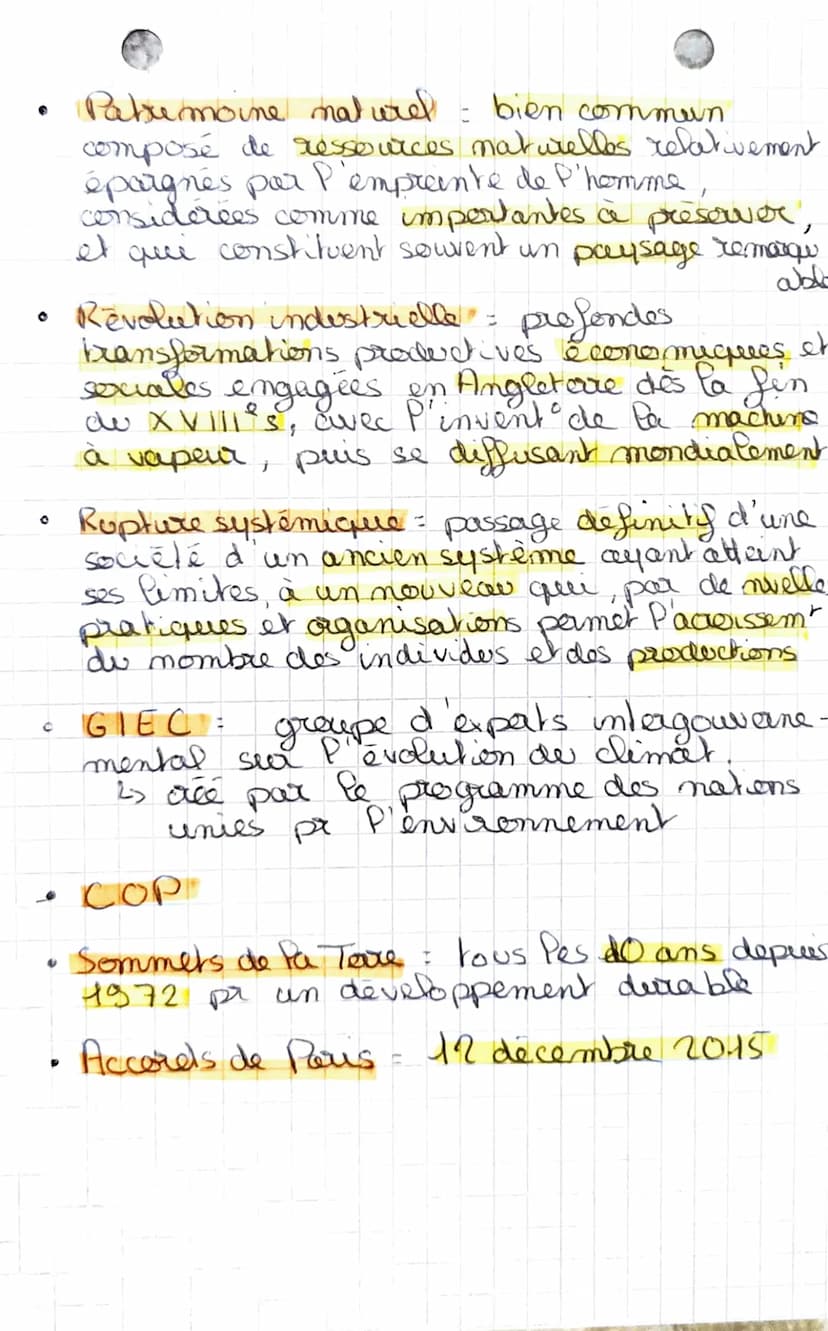 • Patrimoine naturel = bien commun
composé de ressources naturelles relativement
épargnés par l'empreinte de l'homme,
considérées comme importantes à préserver,
et qui constituent souvent un paysage remarqu
able
• Révolution industrielle = profondes
transformations productives économiques et
sociales engagées en Angleterre dès la fin
du XVIIIe s, avec l'invent° de la machine
à vapeur, puis se diffusant mondialement
• Rupture systémique = passage définitif d'une
société d'un ancien système ayant atteint
ses limites, à un nouveau qui, par de nvelle
pratiques et organisations permet l'accroissemt
du nombre des individus et des productions
• GIEC : groupe d'experts intergouverne-
mental sur l'évolution du climat.
↳ créé par le programme des nations
unies pr l'environnement
• COP
• Sommets de la Terre : tous les 10 ans depuis
1972 pr un développement durable
• Accords de Paris = 12 décembre 2015